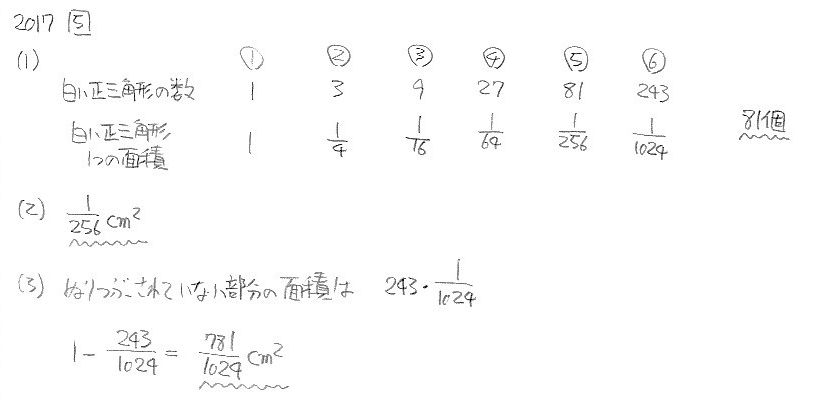 2017 5
(1) ① ② ③ ④ ⑤ ⑥
白い正三角形の数 1 3 9 27 81 243
白い正三角形1つの面積 1 1/4 1/16 1/64 1/256 1/1024 81個
(2) 1/256 cm²
(3) ぬりつぶされていない部分の面積は 243・1/1024
1 - 243/1024 = 781/1024 cm²